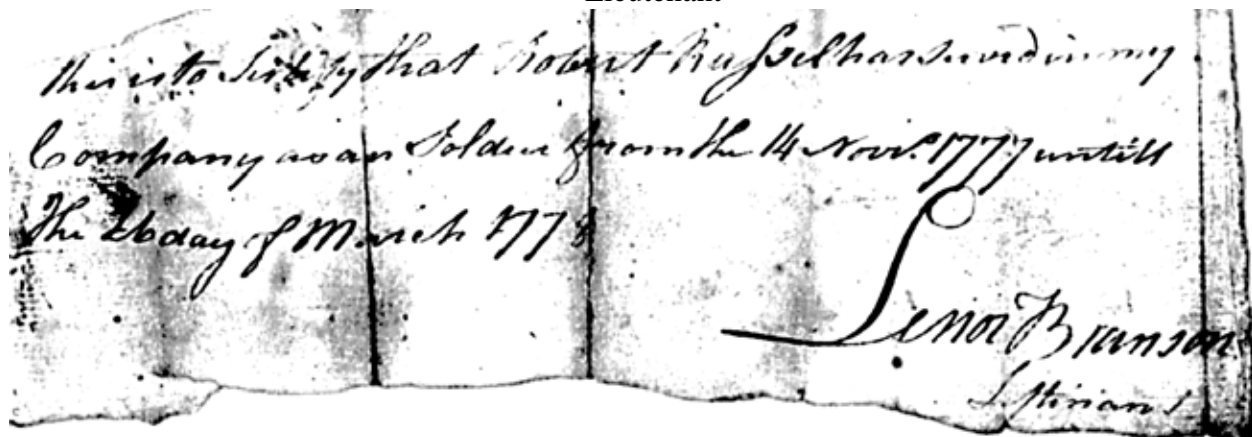 this is to Sertify that Robert Russel has served in my
Company as an Soldier from the 14 Novr. 1777 untill
the 26 day of March 1778
Lenoi Branson